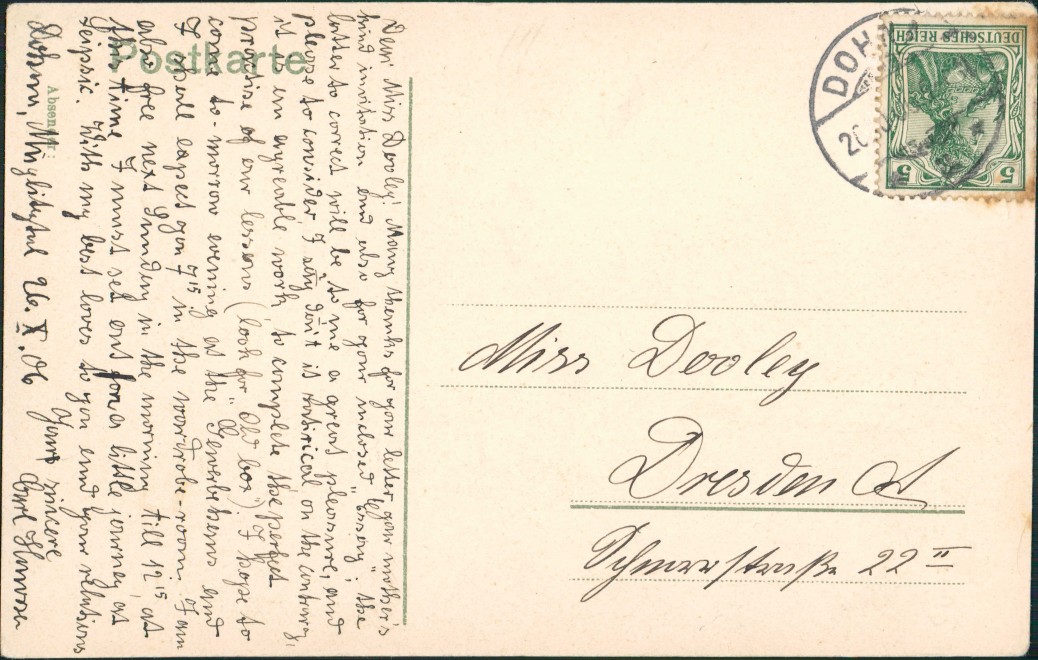 Postkarte
Absender:
Dear Miss Dooley! Many thanks for your letter your mother's
kind invitation and also for your inclosed "Essay", the
latter to correct will be to me a great pleasure, and
please to consider I say don't is satirical on the contrary,
it is an agreable work to complete the perfect
promise of our lessons (look for "Old box"). I hope to
come to-morrow evening at the Gewerbehaus and
I shall expect you 7 15 in the wardrobe-room. I am
also free next Sunday in the morning till 12 15 at
this time I must set out for a little journey at
Leipsic. With my best loves to you and your relations
Yours sincere
Dohna, Müglitztal 26. X. 06 Curl
Miss Dooley
Dresden A
Schnorrstraße 22 II
DOHNA
26
DEUTSCHES REICH
5 5